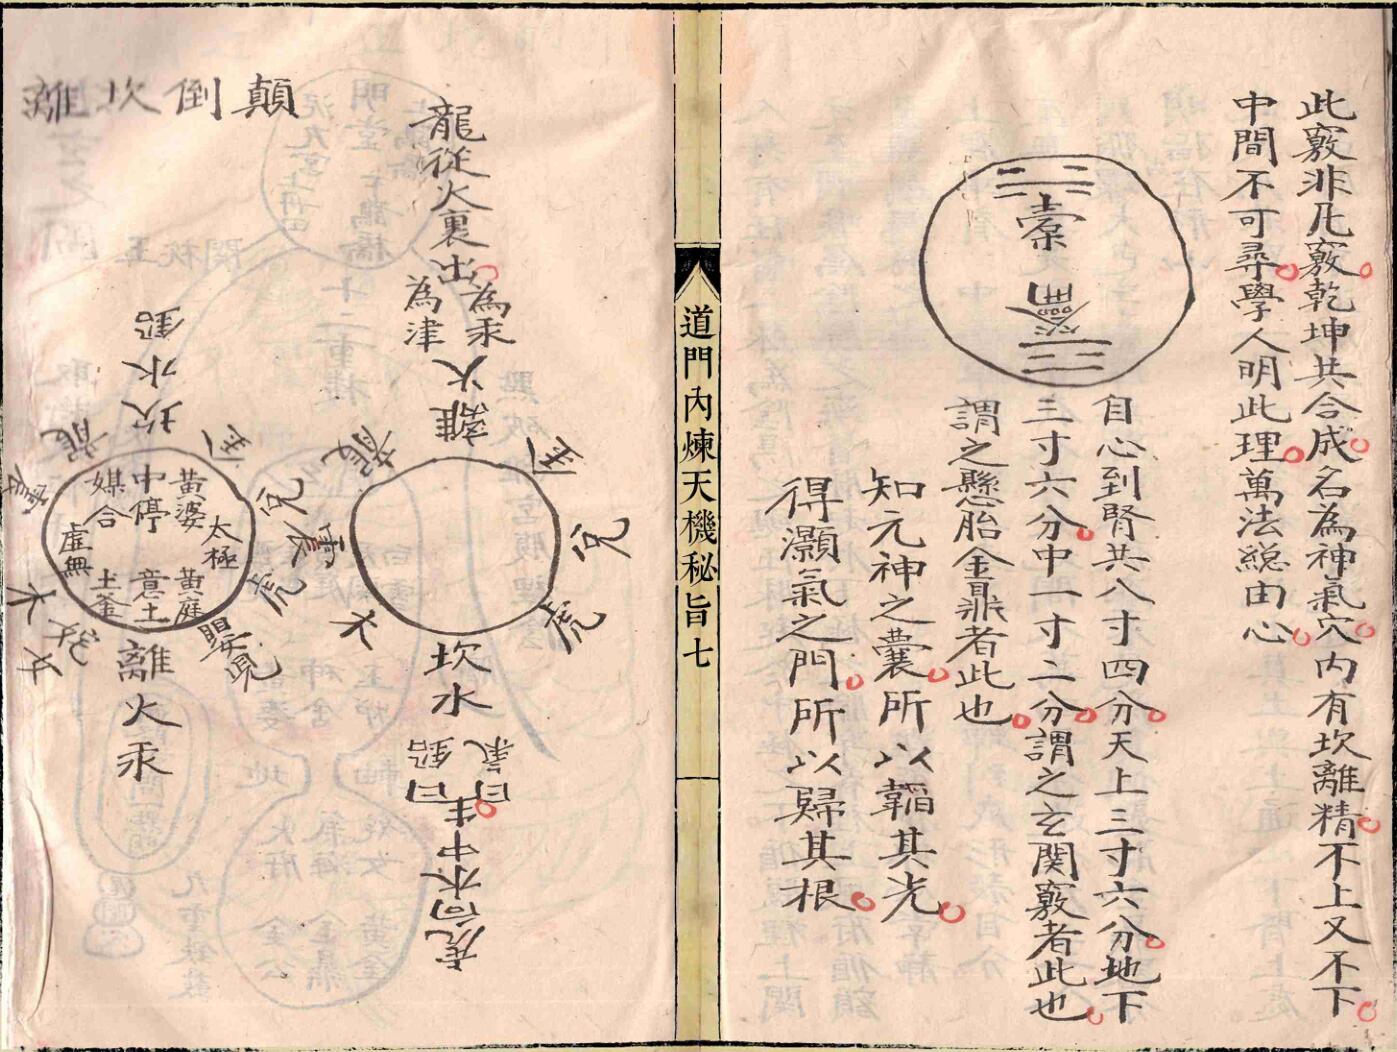 此竅非凡竅乾坤共合成名為神氣穴内有坎離精不上又不下
中間不可尋學人明此理萬法総由心
橐
籥
自心到腎共八寸四分天上三寸六分地下
三寸六分中一寸二分謂之玄関竅者此也
謂之懸胎金鼎者此也
知元神之囊所以韜其光
得灝氣之門所以歸其根
道門内煉天機秘旨七
龍從火裏出
為汞
為津
離火
金
兌
虎
坎水
木
震
龍
汞
鉛
曰
曰
虎向水中生
顛倒坎離
鉛
坎水
金
兌
虎
嬰児
離火汞
姹女
木
震
龍
黄婆
中停
媒合
太極
虛無
黄庭
意土
土釜